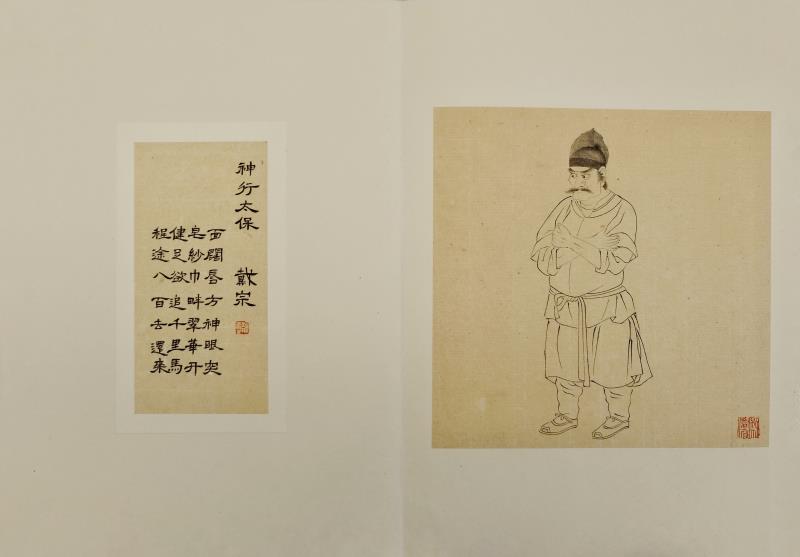 神行太保 戴宗
面闊唇方神眼突
皂紗巾畔翠華开
健足欲追千里馬
程途八百去還來